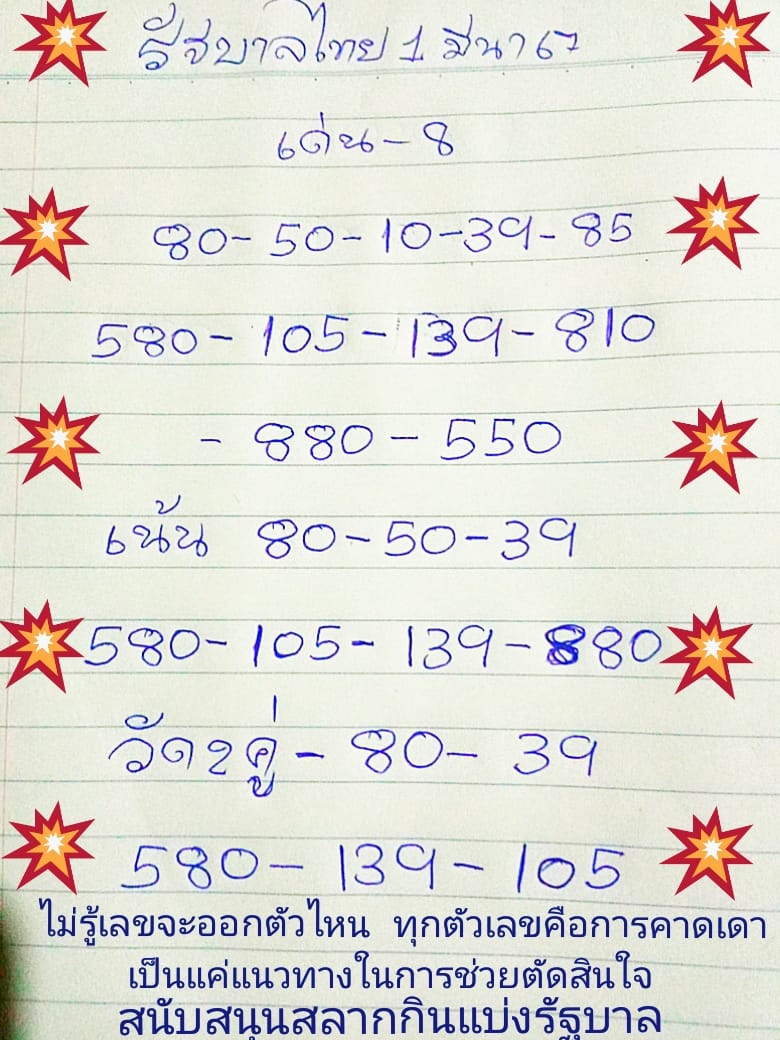 รัฐบาลไทย 1 มีนา 67
เด่น - 8
80 - 50 - 10 - 39 - 85
580 - 105 - 139 - 810
- 880 - 550
เน้น 80 - 50 - 39
580 - 105 - 139 - 880
วัด 2 คู่ - 80 - 39
580 - 139 - 105
ไม่รู้เลขจะออกตัวไหน ทุกตัวเลขคือการคาดเดา
เป็นแค่แนวทางในการช่วยตัดสินใจ
สนับสนุนสลากกินแบ่งรัฐบาล